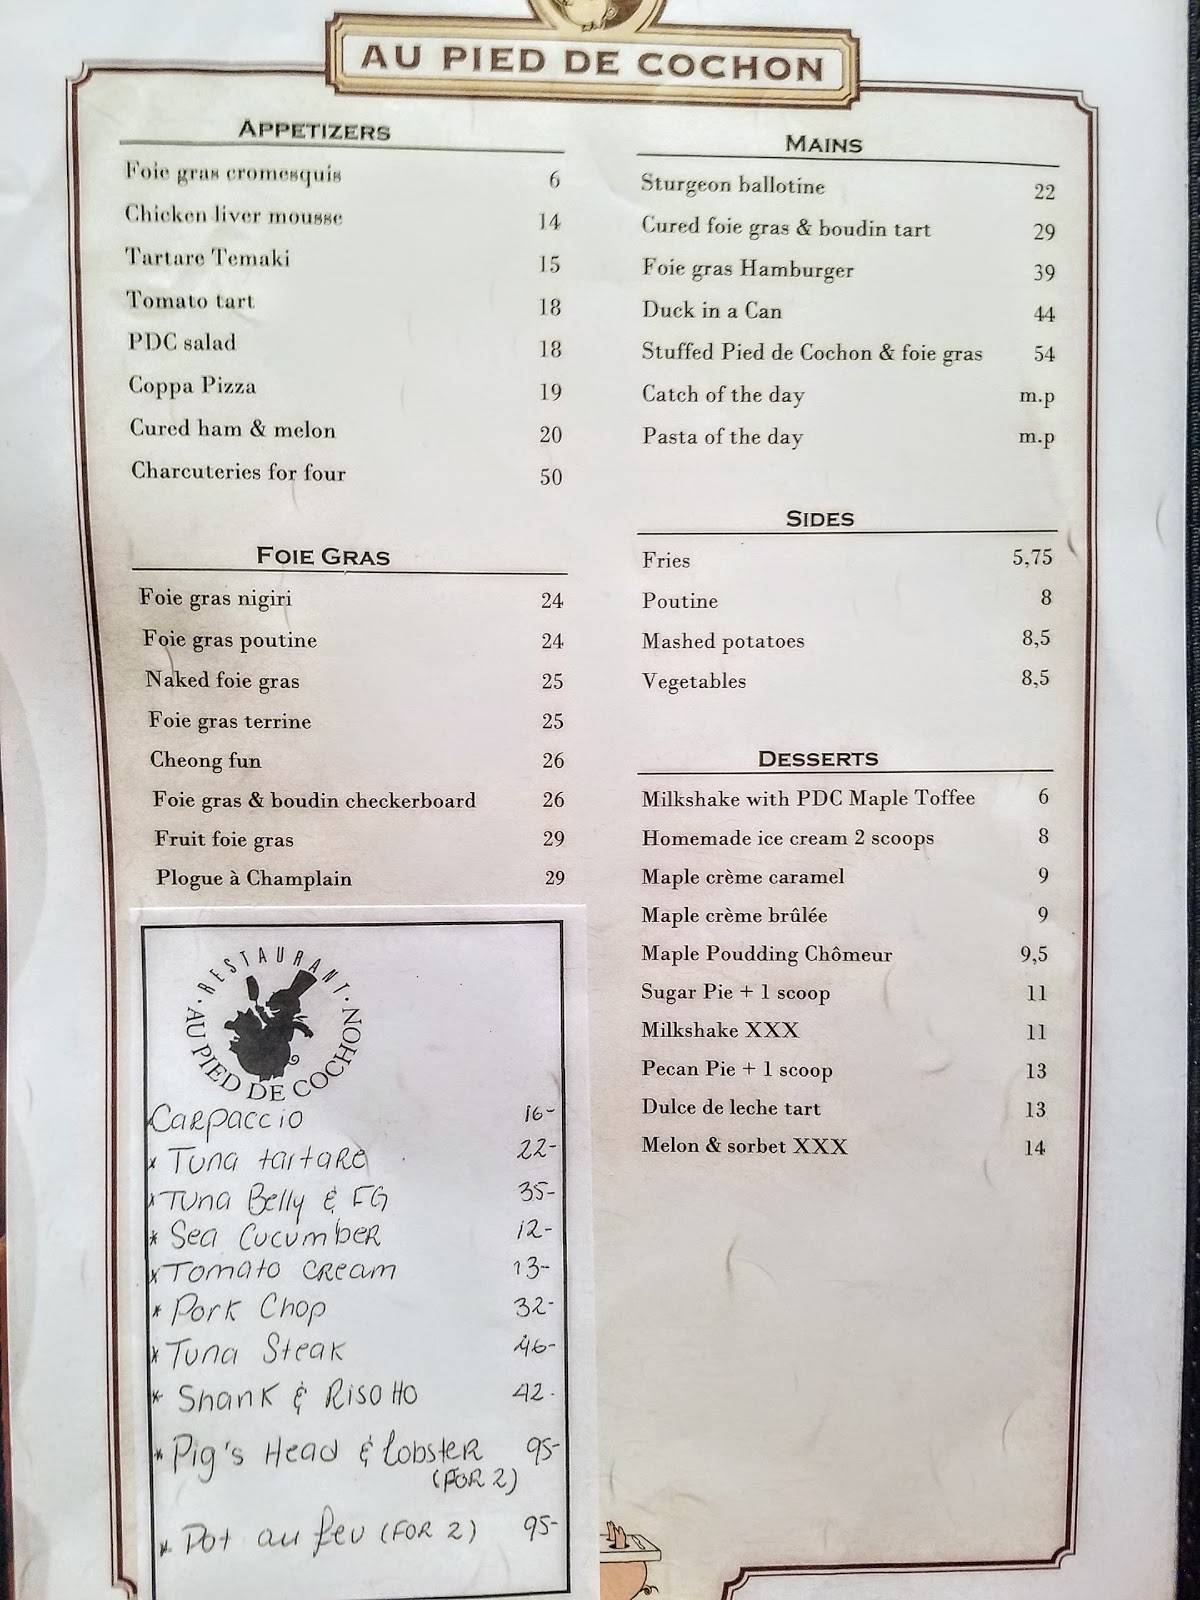 AU PIED DE COCHON
APPETIZERS
Foie gras cromesquis 6
Chicken liver mousse 14
Tartare Temaki 15
Tomato tart 18
PDC salad 18
Coppa Pizza 19
Cured ham & melon 20
Charcuteries for four 50
FOIE GRAS
Foie gras nigiri 24
Foie gras poutine 24
Naked foie gras 25
Foie gras terrine 25
Cheong fun 26
Foie gras & boudin checkerboard 26
Fruit foie gras 29
Plogue à Champlain 29
RESTAURANT
AU PIED DE COCHON
Carpaccio 16-
* Tuna tartare 22-
* Tuna Belly & FG 35-
* Sea Cucumber 12-
* Tomato cream 13-
* Pork Chop 32-
* Tuna Steak 46-
* Shank & Risotto 42-
* Pig's Head & Lobster 95-
(FOR 2)
* Pot au feu (FOR 2) 95-
MAINS
Sturgeon ballotine 22
Cured foie gras & boudin tart 29
Foie gras Hamburger 39
Duck in a Can 44
Stuffed Pied de Cochon & foie gras 54
Catch of the day m.p
Pasta of the day m.p
SIDES
Fries 5,75
Poutine 8
Mashed potatoes 8,5
Vegetables 8,5
DESSERTS
Milkshake with PDC Maple Toffee 6
Homemade ice cream 2 scoops 8
Maple crème caramel 9
Maple crème brûlée 9
Maple Poudding Chômeur 9,5
Sugar Pie + 1 scoop 11
Milkshake XXX 11
Pecan Pie + 1 scoop 13
Dulce de leche tart 13
Melon & sorbet XXX 14